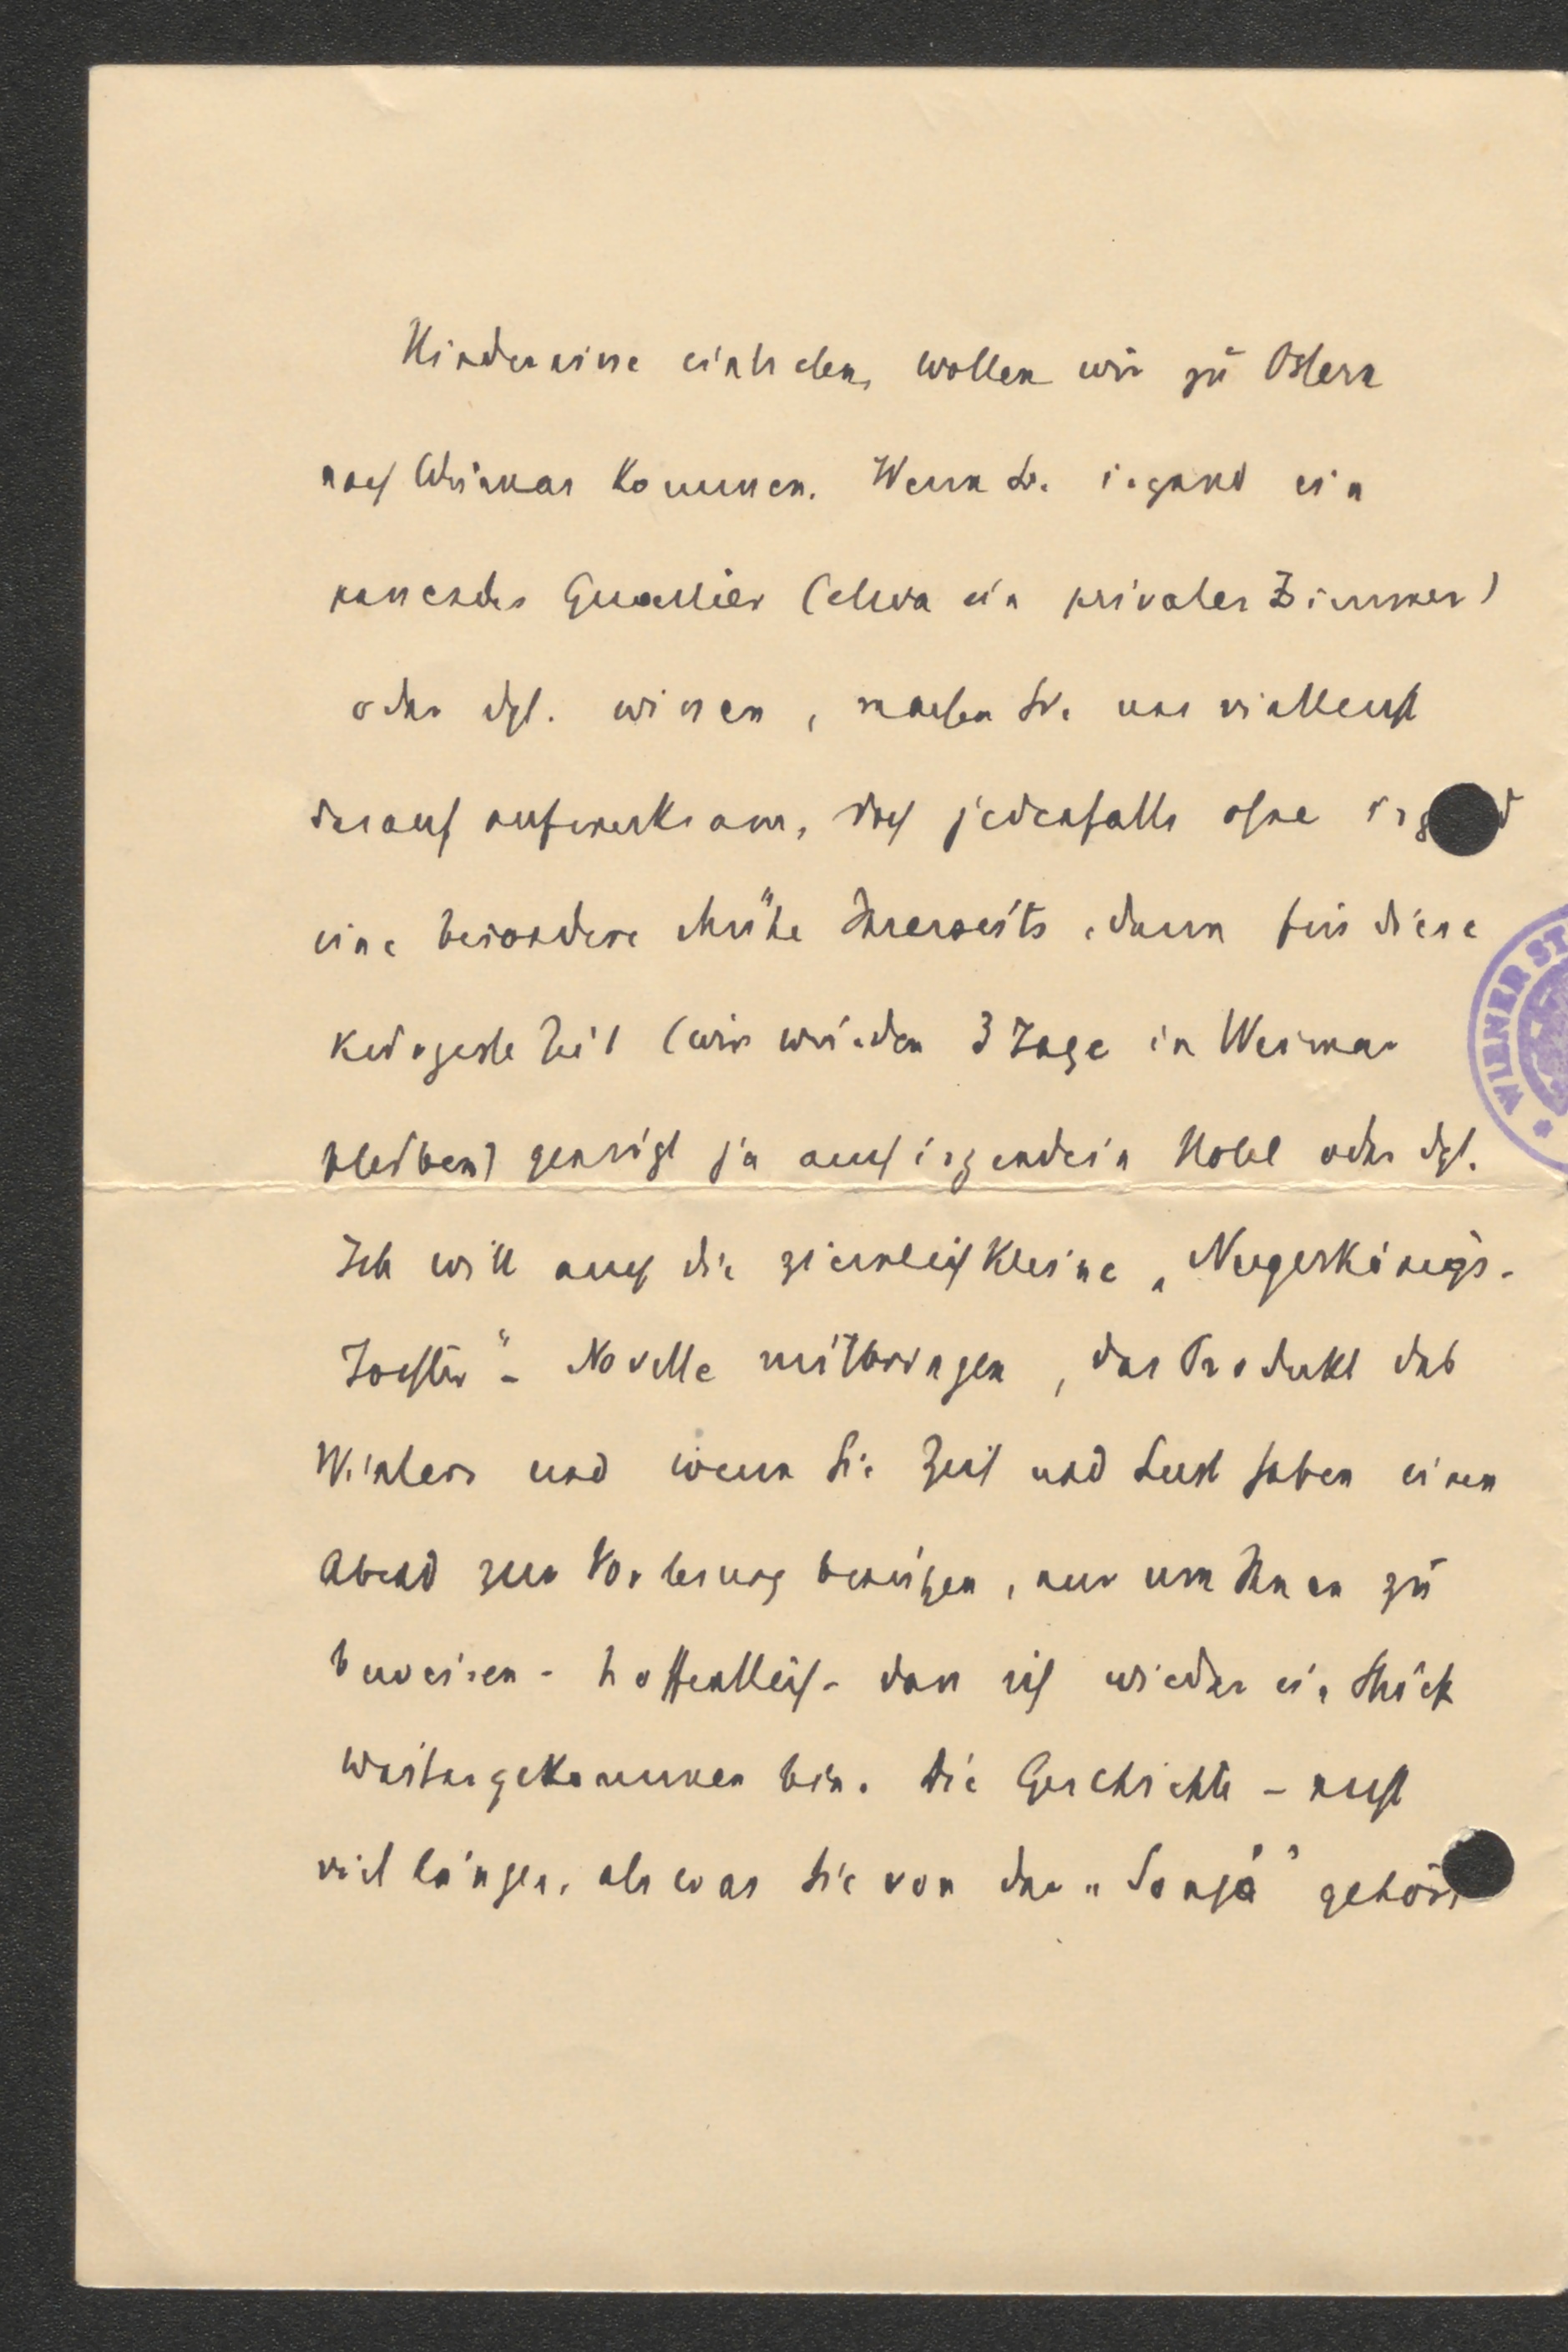 Hindernisse eintreten, wollen wir zu Ostern
nach Weimar kommen. Wenn Sie irgend ein
passendes Quartier (etwa ein privates Zimmer)
oder dgl. wissen, machen Sie uns vielleicht
darauf aufmerksam, doch jedenfalls ohne irgend
eine besondere Mühe Ihrerseits, denn für diese
Zeit (wir würden 3 Tage in Weimar
bleiben) genügt ja auch irgendein Hotel oder dgl.
Ich will auch die ziemlich kleine „Negerkönigs-
Tochter“ - Novelle mitbringen, das Produkt des
Winters und wenn Sie Zeit und Lust haben einen
Abend zur Vorlesung benützen, nur um Ihnen zu
beweisen - hoffentlich - dass ich wieder ein Stück
weitergekommen bin. Die Geschichte - nicht
viel länger, als was Sie von der „Sonja“ gehört
WIENER ST